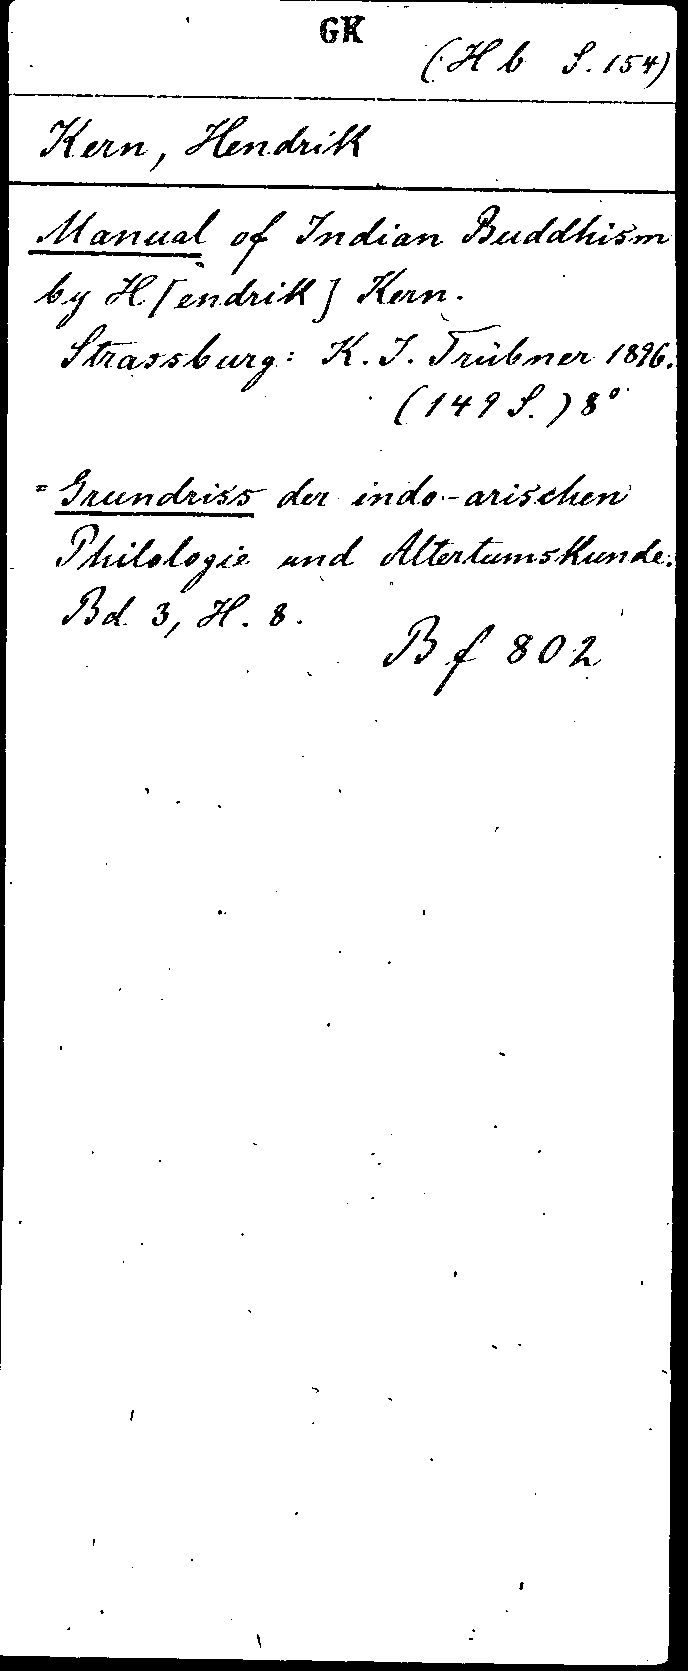 GK
(Hb S. 154)
Kern, Hendrik
Manual of Indian Buddhism
by H[endrik] Kern.
Strassburg: K. J. Trübner 1896.
(149 S.) 8°
= Grundriss der indo-arischen
Philologie und Altertumskunde.
Bd. 3, H. 8.
Bf 802